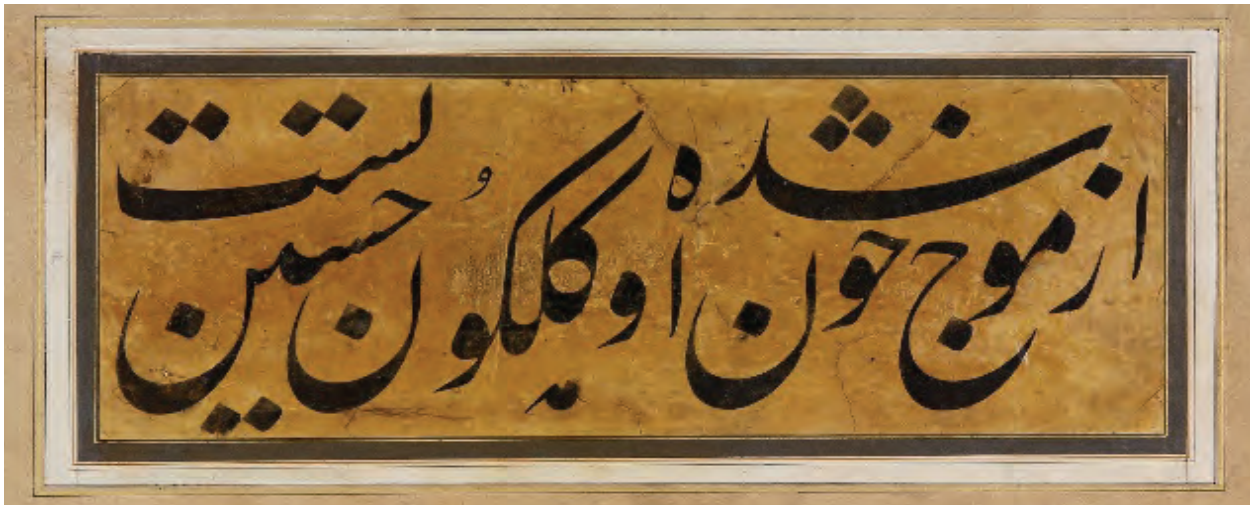 از موج خون او شده کلکون حسین تست